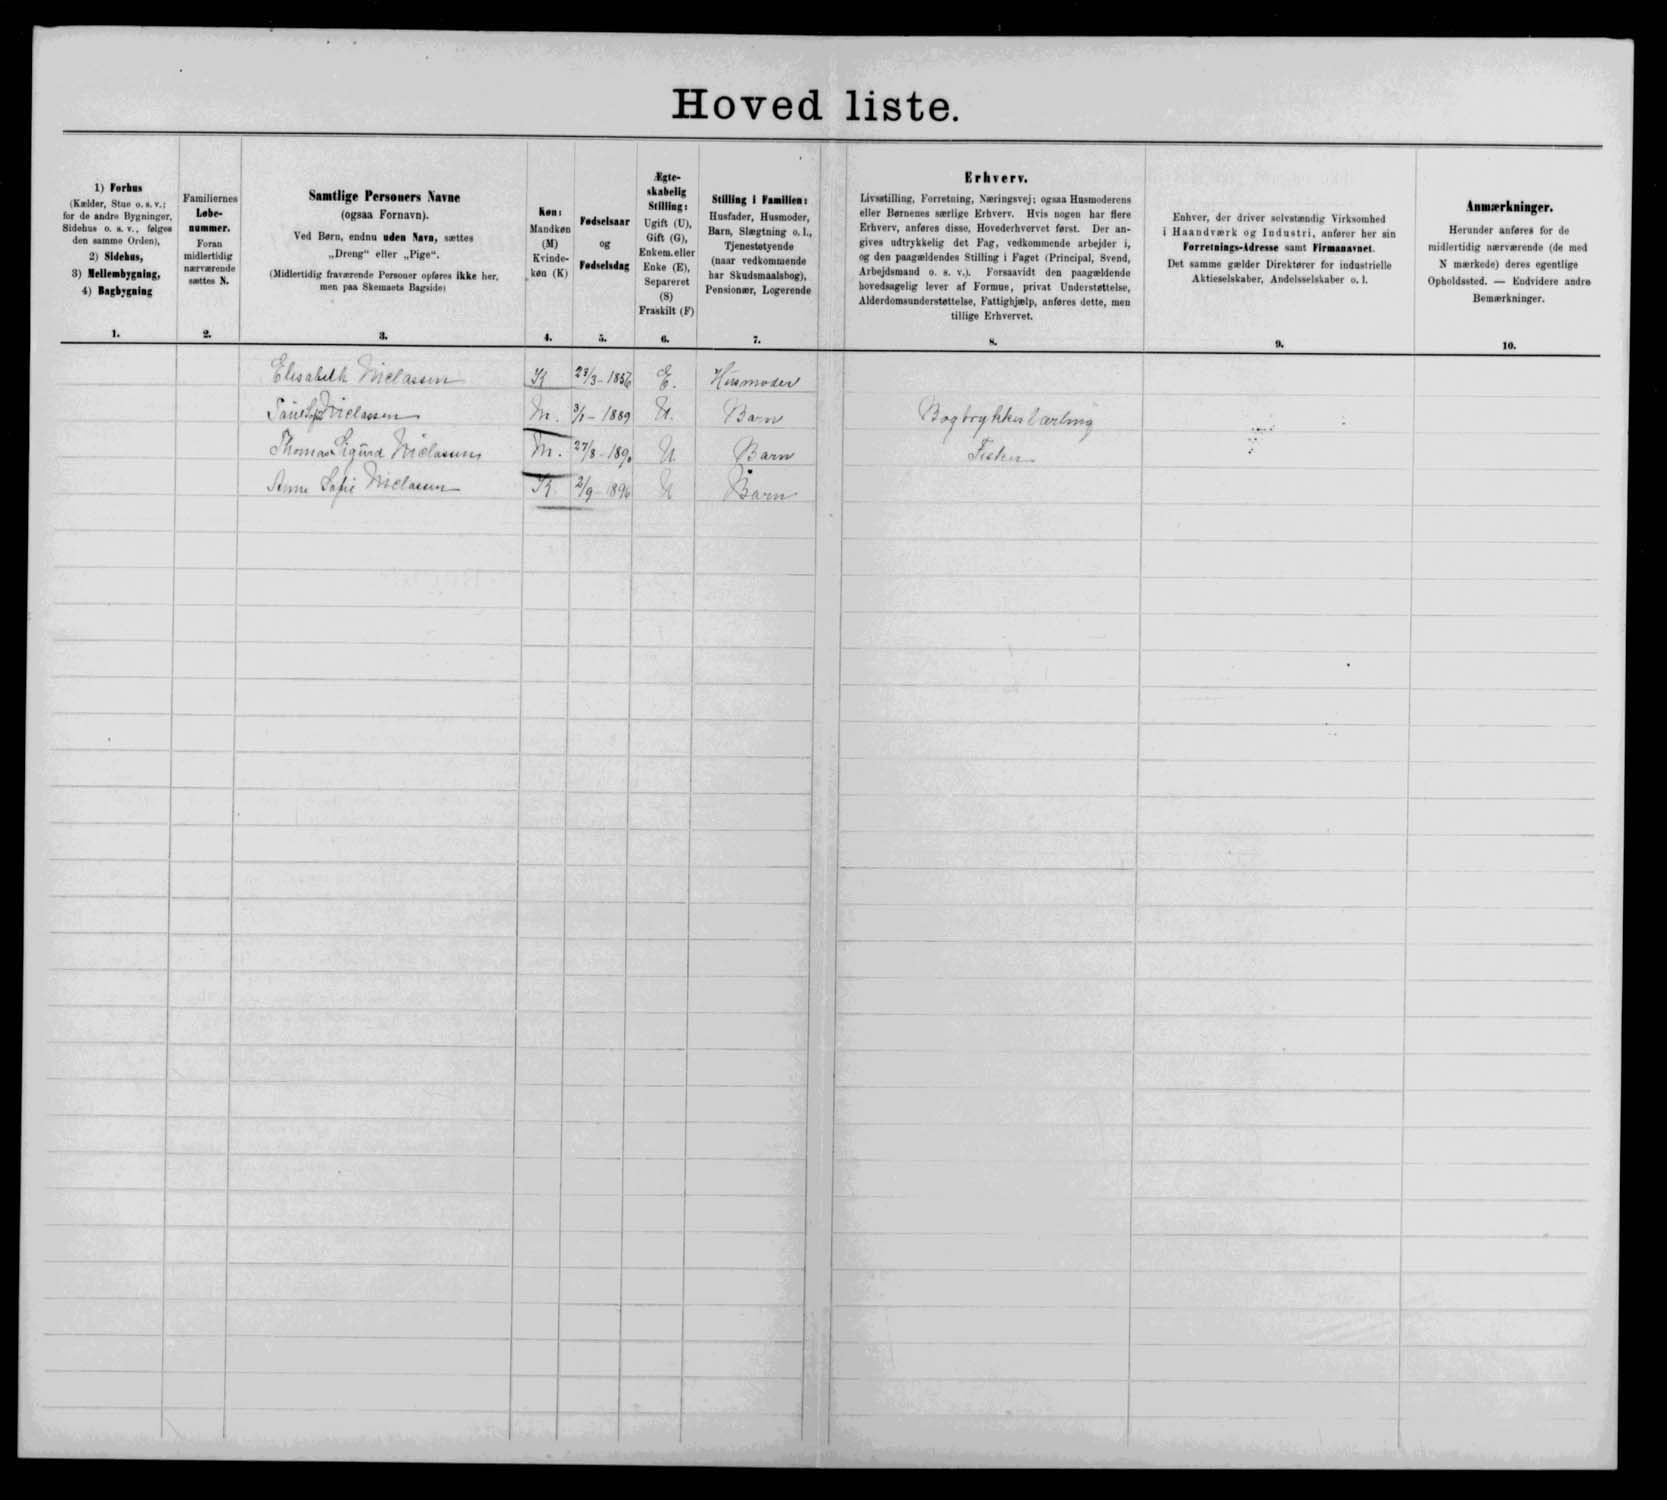 Hoved liste.
1) Forhus
(Kælder, Stue o. s. v.;
for de andre Bygninger,
Sidehus o. s. v., følges
den samme Orden),
2) Sidehus,
3) Mellembygning,
4) Bagbygning
1.
Familiernes
Løbe-
nummer.
Foran
midlertidig
nærværende
sættes N.
2.
Samtlige Personers Navne
(ogsaa Fornavn).
Ved Børn, endnu uden Navn, sættes
„Dreng“ eller „Pige“.
(Midlertidig fraværende Personer opføres ikke her,
men paa Skemaets Bagside)
3.
Køn:
Mandkøn
(M)
Kvinde-
køn (K)
4.
Fødselsaar
og
Fødselsdag
5.
Ægte-
skabelig
Stilling:
Ugift (U),
Gift (G),
Enkem. eller
Enke (E),
Separeret
(S)
Fraskilt (F)
6.
Stilling i Familien:
Husfader, Husmoder,
Barn, Slægtning o. l.,
Tjenestetyende
(naar vedkommende
har Skudsmaalsbog),
Pensionær, Logerende
7.
Erhverv.
Livsstilling, Forretning, Næringsvej; ogsaa Husmoderens
eller Børnenes særlige Erhverv. Hvis nogen har flere
Erhverv, anføres disse, Hovederhvervet først. Der an-
gives udtrykkelig det Fag, vedkommende arbejder i,
og den paagældendes Stilling i Faget (Principal, Svend,
Arbejdsmand o. s. v.). Forsaavidt den paagældende
hovedsagelig lever af Formue, privat Understøttelse,
Alderdomsunderstøttelse, Fattighjælp, anføres dette, men
tillige Erhvervet.
8.
Enhver, der driver selvstændig Virksomhed
i Haandværk og Industri, anfører her sin
Forretnings-Adresse samt Firmanavnet.
Det samme gælder Direktører for industrielle
Aktieselskaber, Andelsselskaber o. l.
9.
Anmærkninger.
Herunder anføres for de
midlertidig nærværende (de med
N mærkede) deres egentlige
Opholdssted. — Endvidere andre
Bemærkninger.
10.
Elisabeth Niclassen K 23/3-1856 E. Husmoder
Niclassen M. 3/1-1889 U. Barn Bogtrykkerlærling
Thomas Sigurd Niclassen M. 27/8-1890 U. Barn Fisker
Anna Sofie Niclassen K. 2/9-1896 U Barn